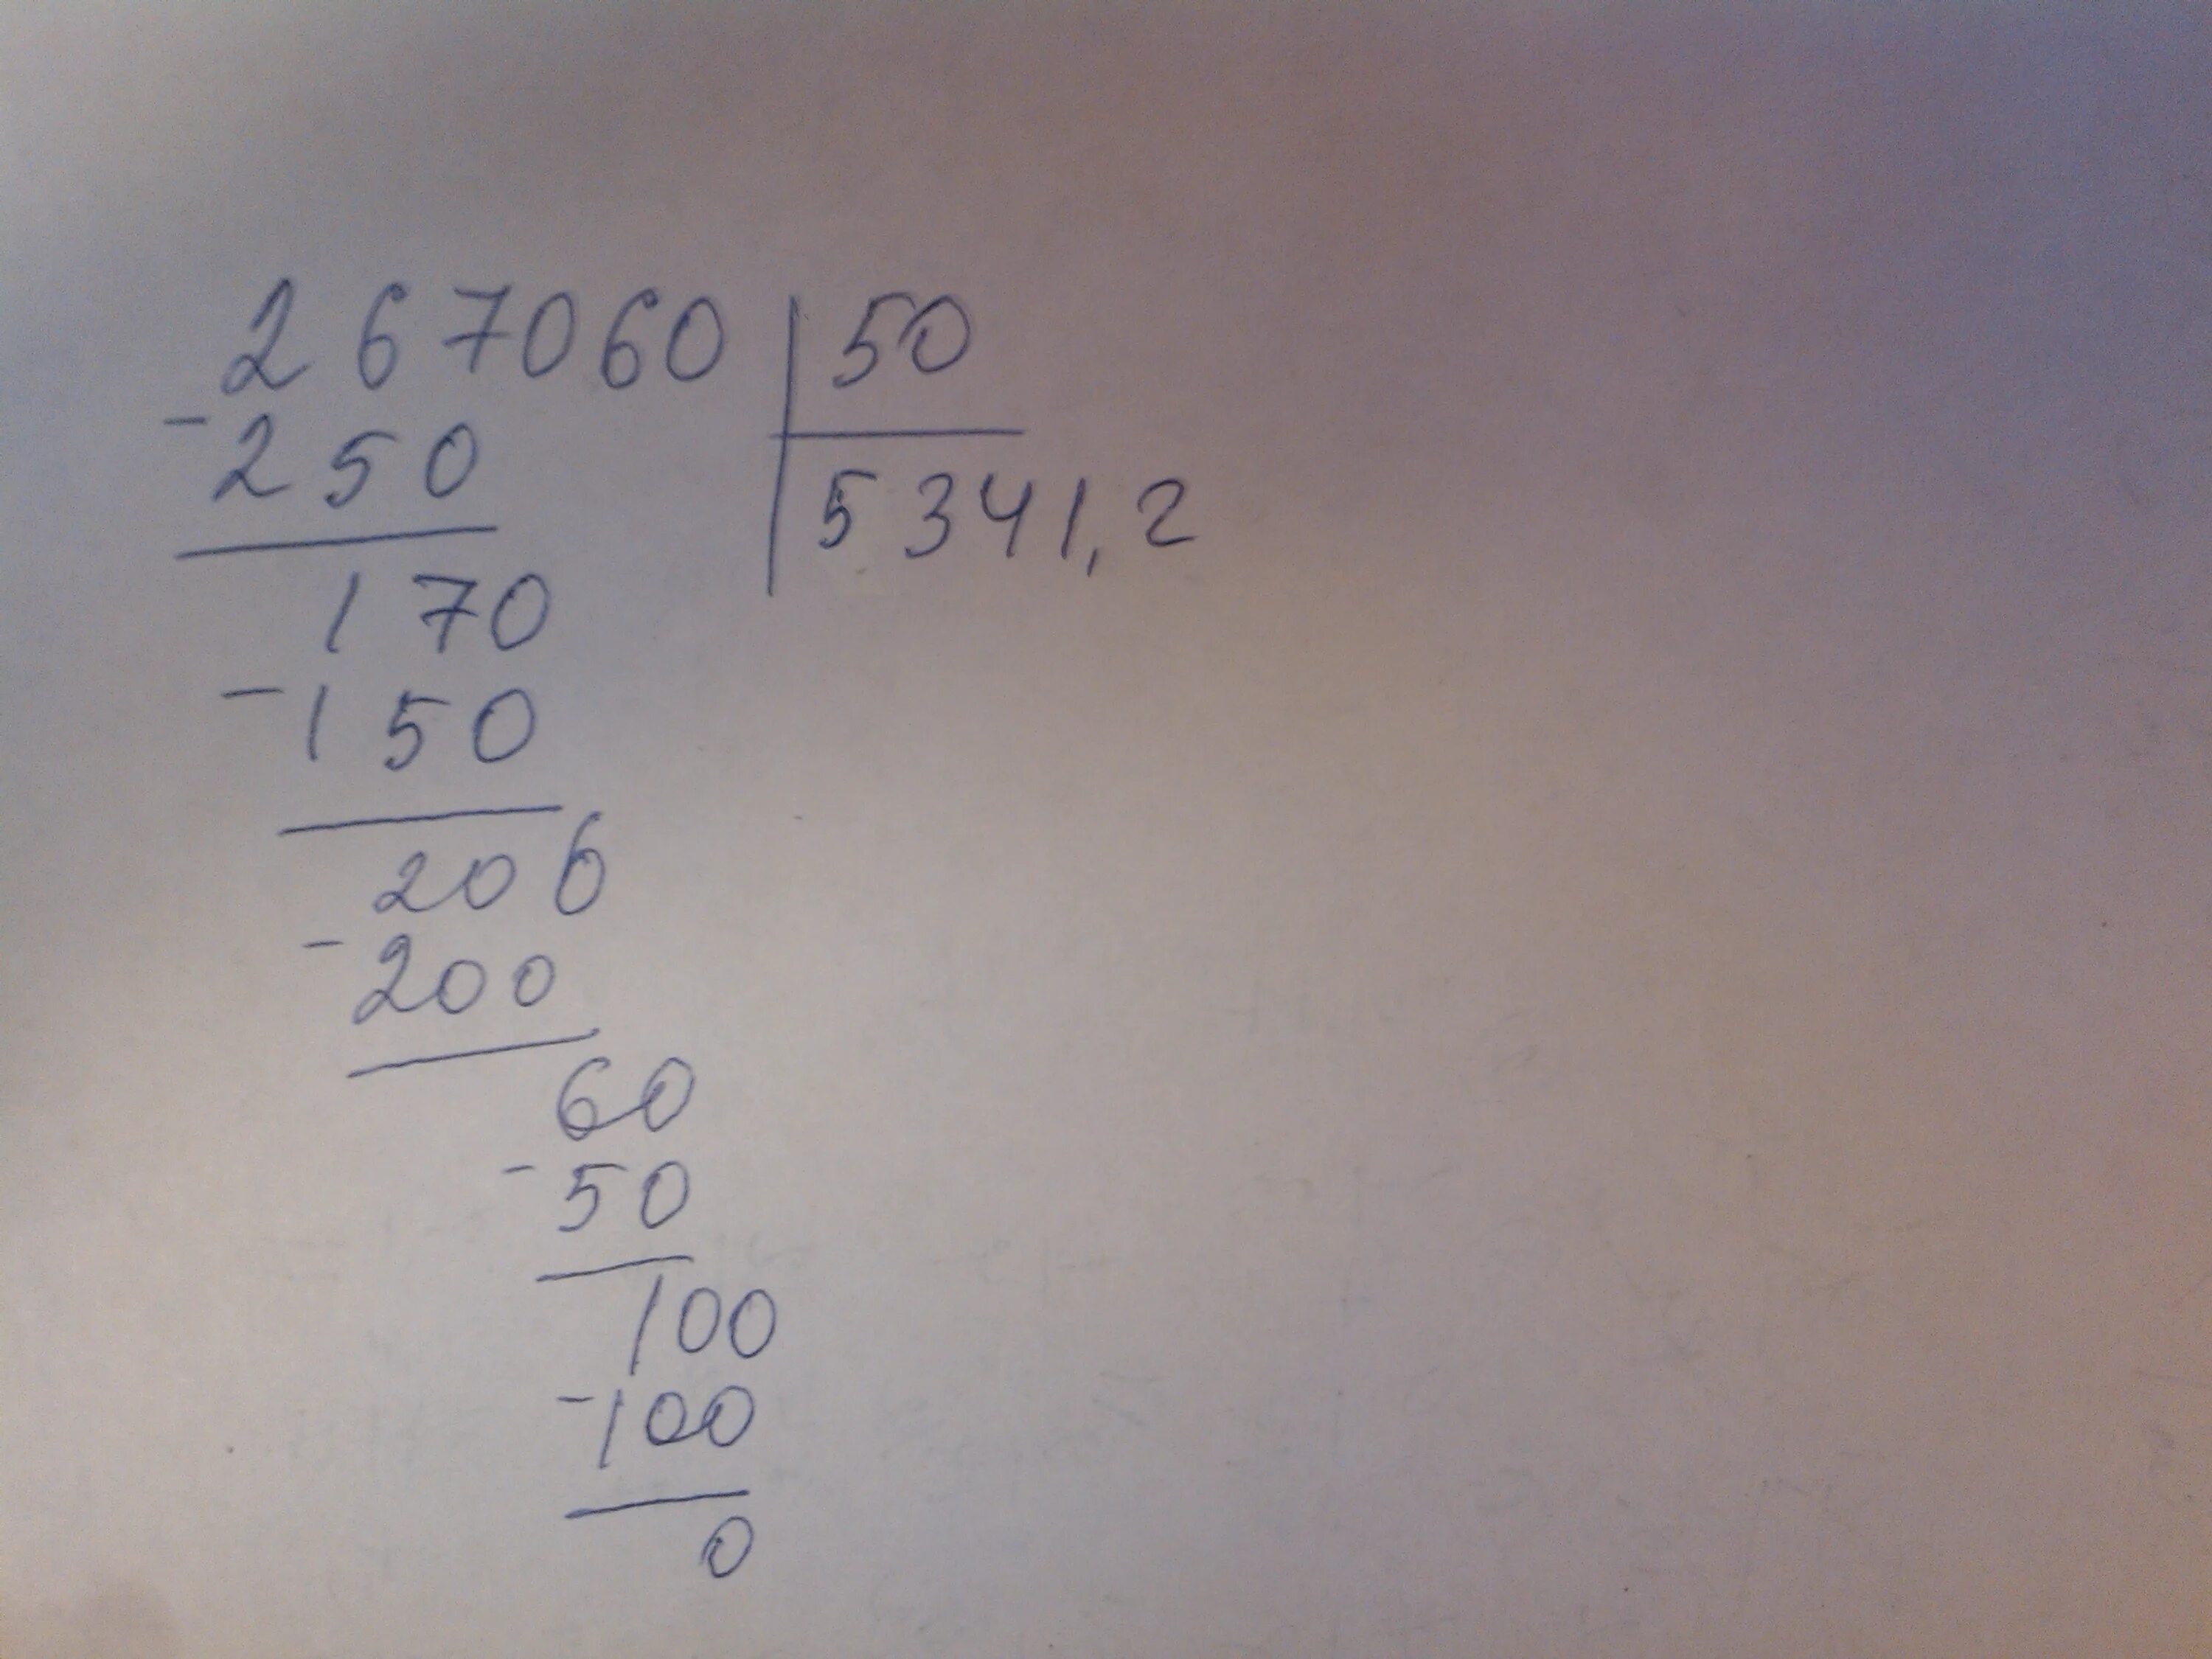 267060 50
- 250 5341,2
170
- 150
206
- 200
60
- 50
100
- 100
0